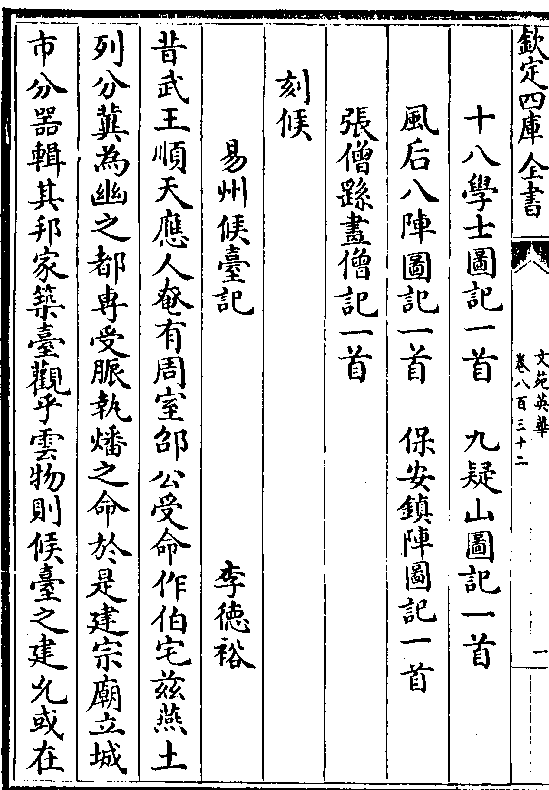 欽定四庫全書
文苑英華
卷八百三十二
一
十八學士圖記一首 九疑山圖記一首
風后八陣圖記一首 保安鎮陣圖記一首
張僧繇畫僧記一首
刻候
易州候臺記 李德裕
昔武王順天應人奄有周室邵公受命作伯宅兹燕土
列分冀為幽之都専受脤執燔之命於是建宗廟立城
市分器輯其邦家築臺觀乎雲物則候臺之建允或在